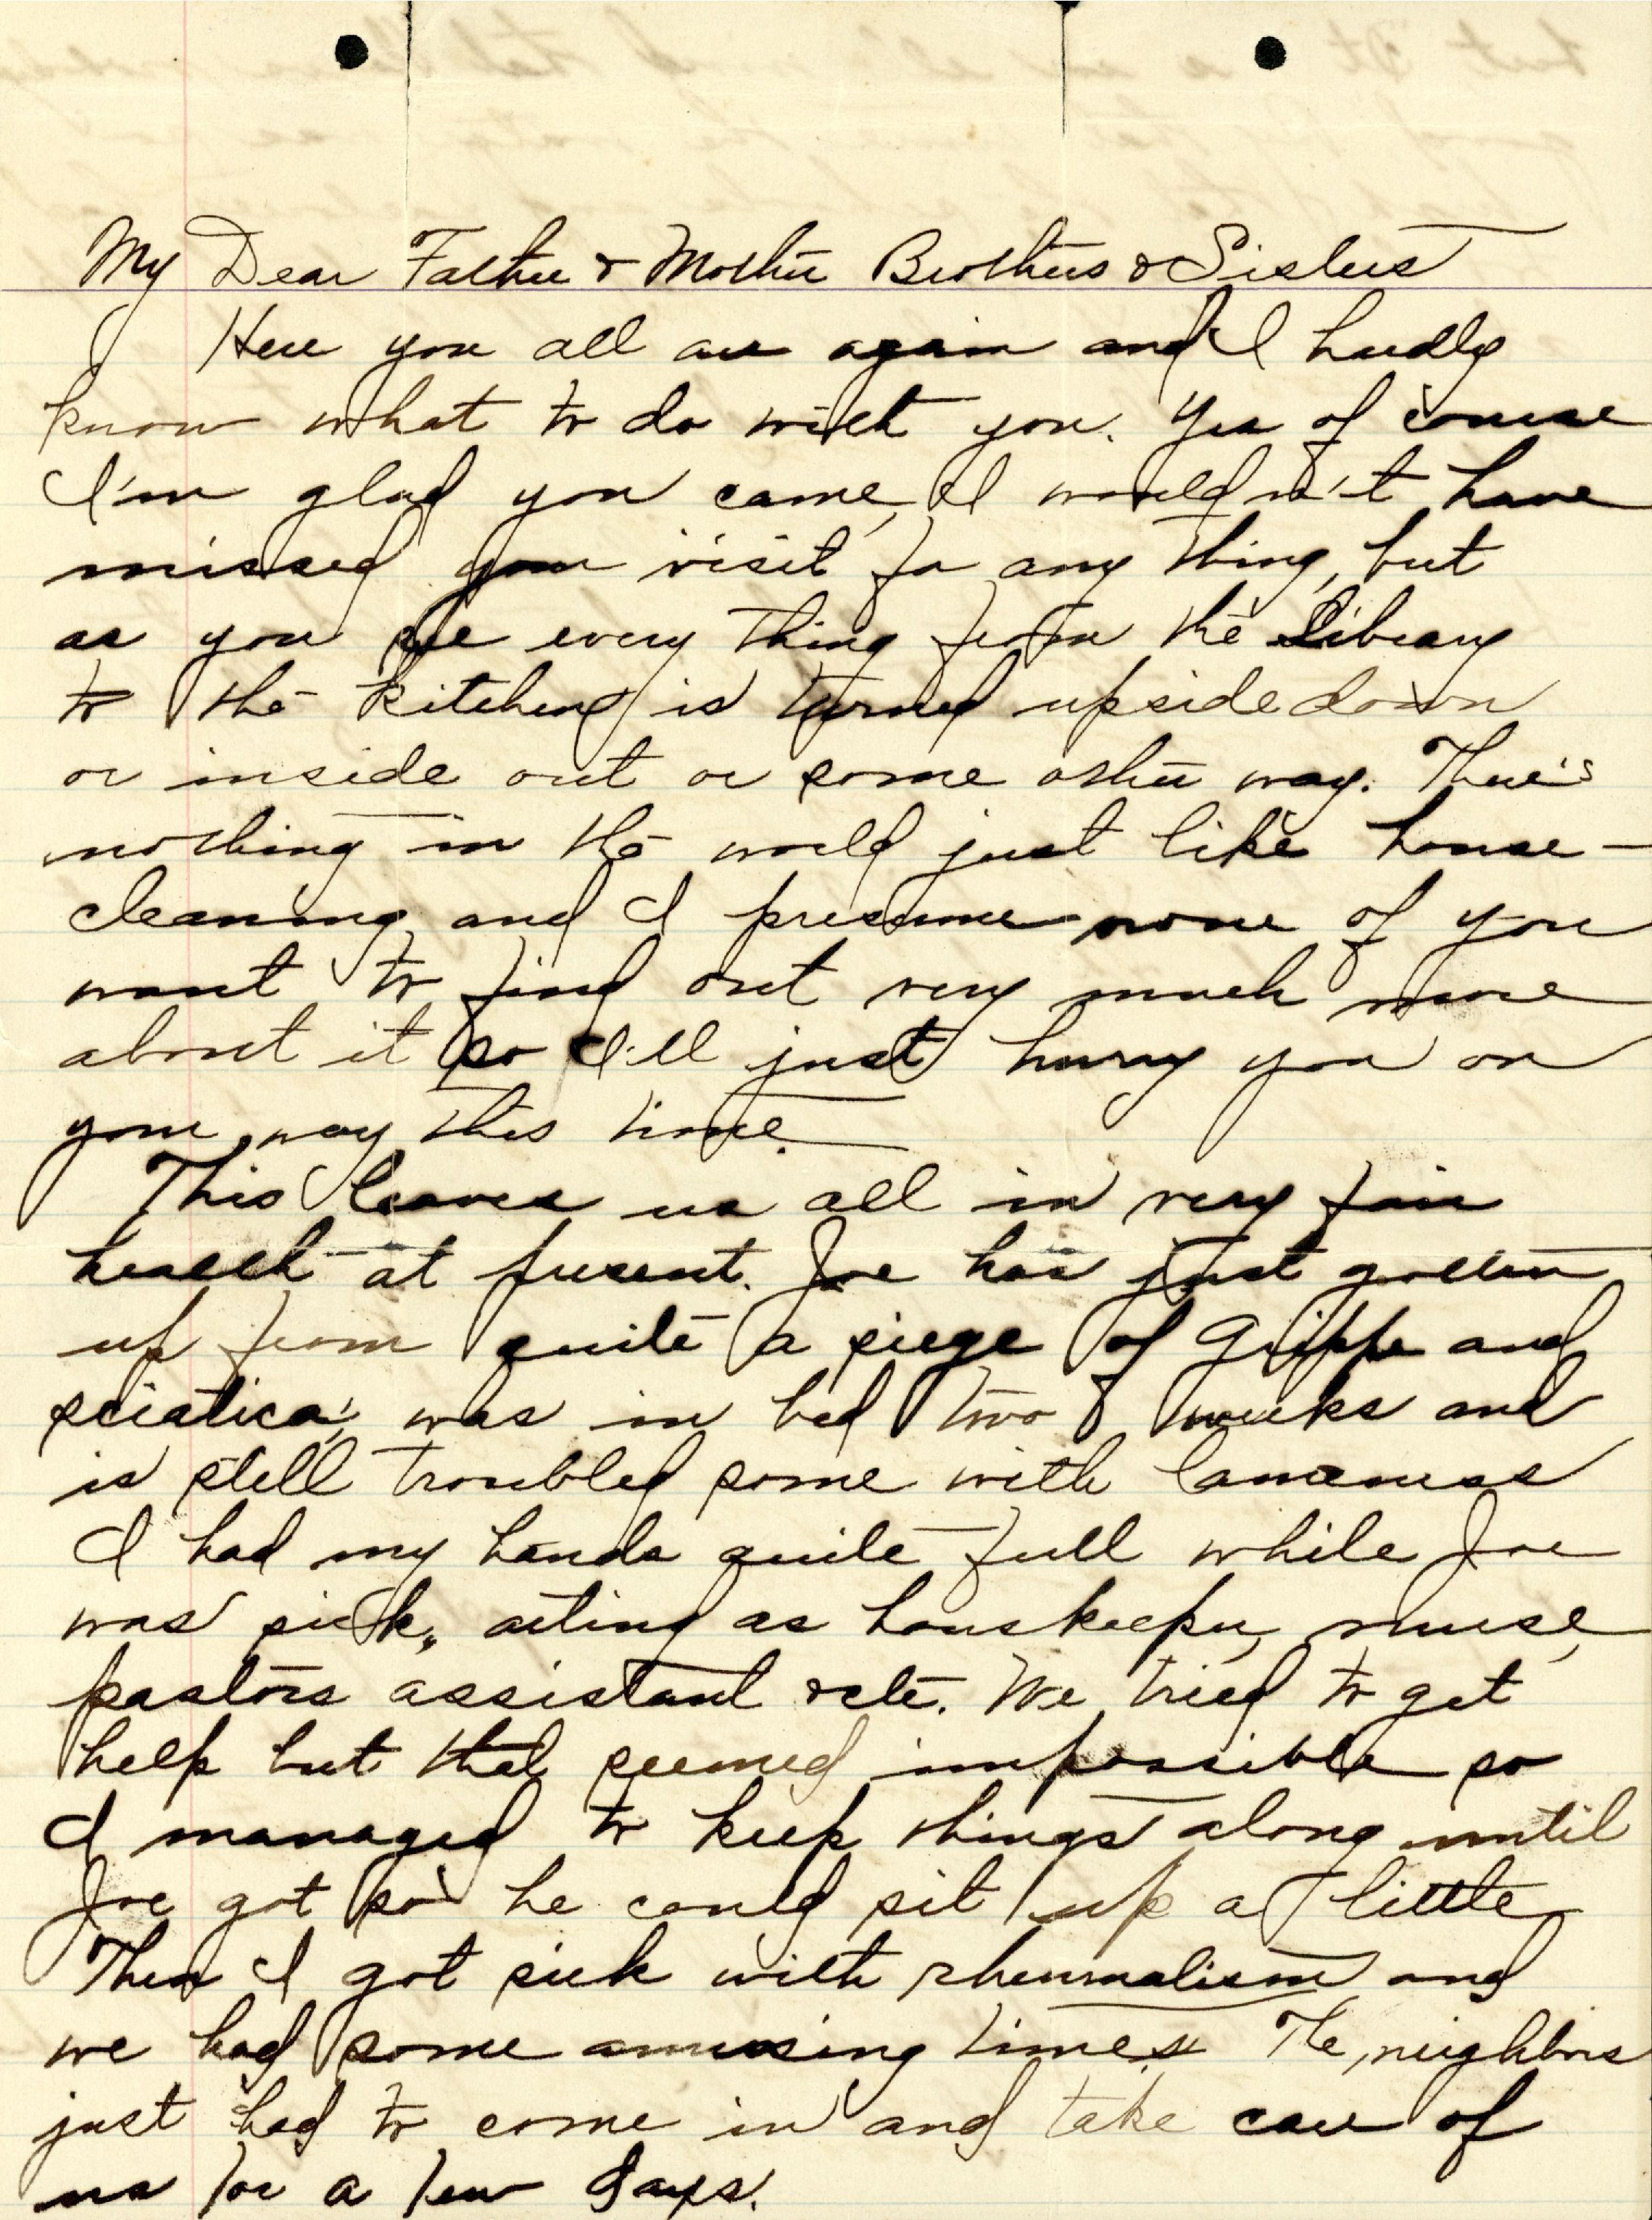 My Dear Father & Mother Brothers & Sisters
Here you all are again and I hardly
know what to do with you. Yes of course
I'm glad you came, I wouldn't have
missed your visit for any thing, but
as you see every thing from the Library
to the kitchen is turned upside down
or inside out or some other way. There's
nothing in the world just like house-
cleaning and I presume none of you
want to find out very much more
about it so I'll just hurry you on
your way this time.
This leaves us all in very fair
health at present. Joe has just gotten
up from quite a siege of Grippe and
sciatica, was in bed two weeks and
is still troubled some with lameness
I had my hands quite full while Joe
was sick, acting as houskeeper, nurse,
pastors assistant &etc. We tried to get
help but that seemed impossible so
I managed to keep things along until
Joe got so he could sit up a little
Then I got sick with rheumatism and
we had some amusing times. The neighbors
just had to come in and take care of
us for a few days.